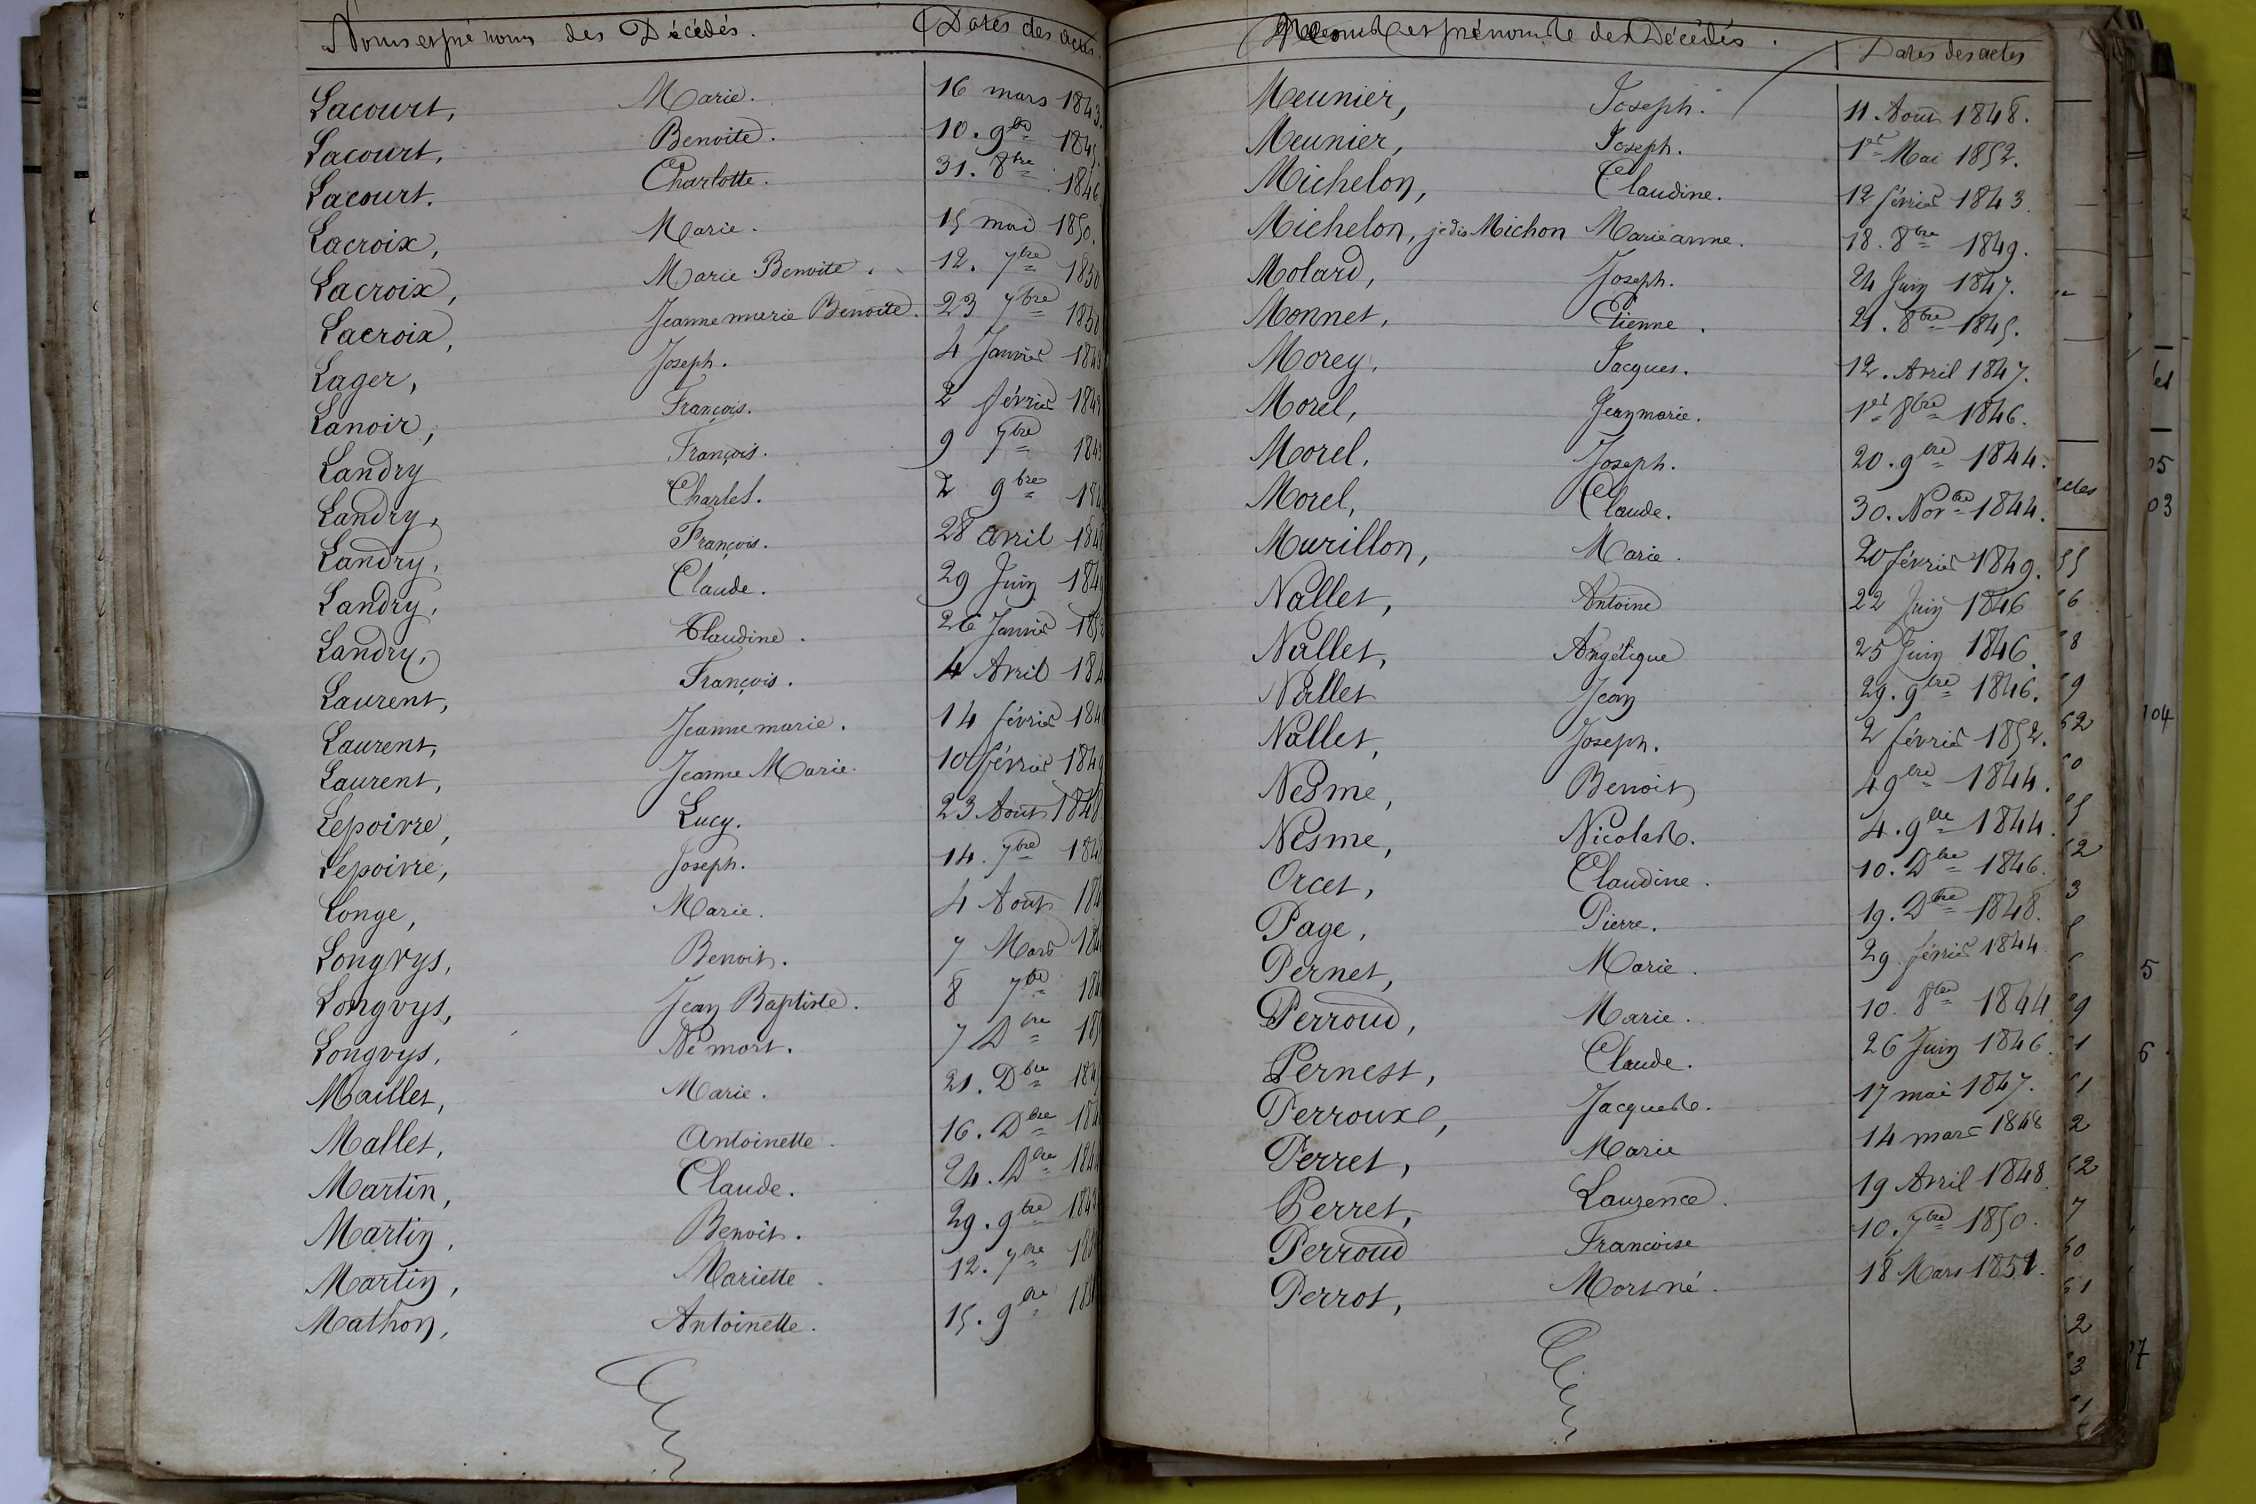 Noms et prénoms des Décédés. Dates des actes.
Lacourt, Marie. 16 mars 1843.
Lacourt, Benoite. 10. 9bre 1845.
Lacourt. Charlotte. 31. 8bre 1846
Lacroix, Marie. 15 mai 1850.
Lacroix, Marie Benoite. 12. 7bre 1850
Lacroix, Jeanne marie Benoite. 23 7bre 1850
Lager, Joseph. 4 Janvier
Lanoir, François. 2 février
Landry François. 9 7bre
Landry, Charles. 2 9bre
Landry, François. 28 avril
Landry, Claude. 29 Juin
Landry, Claudine. 26 Janvier
Laurent, François. 4 Avril
Laurent, Jeanne marie. 14 février
Laurent, Jeanne Marie. 10 février 1849
Lepoivre, Lucy. 23 Août 1848
Lepoivre, Joseph. 14. 7bre
Longe, Marie. 4 Août
Longvys, Benoit. 7 Mars
Longvys, Jean Baptiste. 8 7bre
Longvys, Né mort. 7 Dbre
Maillet, Marie. 21. Dbre
Mallet, Antoinette. 16. Dbre
Martin, Claude. 24. Dbre
Martin, Benoit. 29. 9bre
Martin, Mariette. 12. 7bre
Mathon, Antoinette. 15. 9bre
Noms et prénoms des Décédés. Dates des actes
Meunier, Joseph. 11. Août 1848.
Meunier, Joseph. 1er Mai 1852.
Michelon, Claudine. 12 février 1843.
Michelon, jadis Michon Marieanne. 18. 8bre 1849.
Molard, Joseph. 24 Juin 1847.
Monnet, Etienne. 21. 8bre 1845.
Morey, Jacques. 12. Avril 1847.
Morel, Jean marie. 1er 8bre 1846.
Morel, Joseph. 20. 9bre 1844.
Morel, Claude. 30. Novbre 1844.
Murillon, Marie. 20 février 1849.
Nallet, Antoine 22 Juin 1846
Nallet, Angélique 25 Juin 1846.
Nallet Jean 29. 9bre 1846.
Nallet, Joseph. 2 février 1852.
Nesme, Benoit 4 9bre 1844.
Nesme, Nicolas. 4. 9bre 1844.
Orcet, Claudine. 10. Dbre 1846.
Page, Pierre. 19. Dbre 1848.
Pernet, Marie. 29 février 1844
Perroud, Marie. 10. 8bre 1844
Pernest, Claude. 26 Juin 1846.
Perroux, Jacques. 17 mai 1847.
Perret, Marie 14 mars 1848
Perret, Laurence. 19 Avril 1848.
Perroud Francoise 10. 7bre 1850.
Perrot, Mort né. 18 Mars 1851.